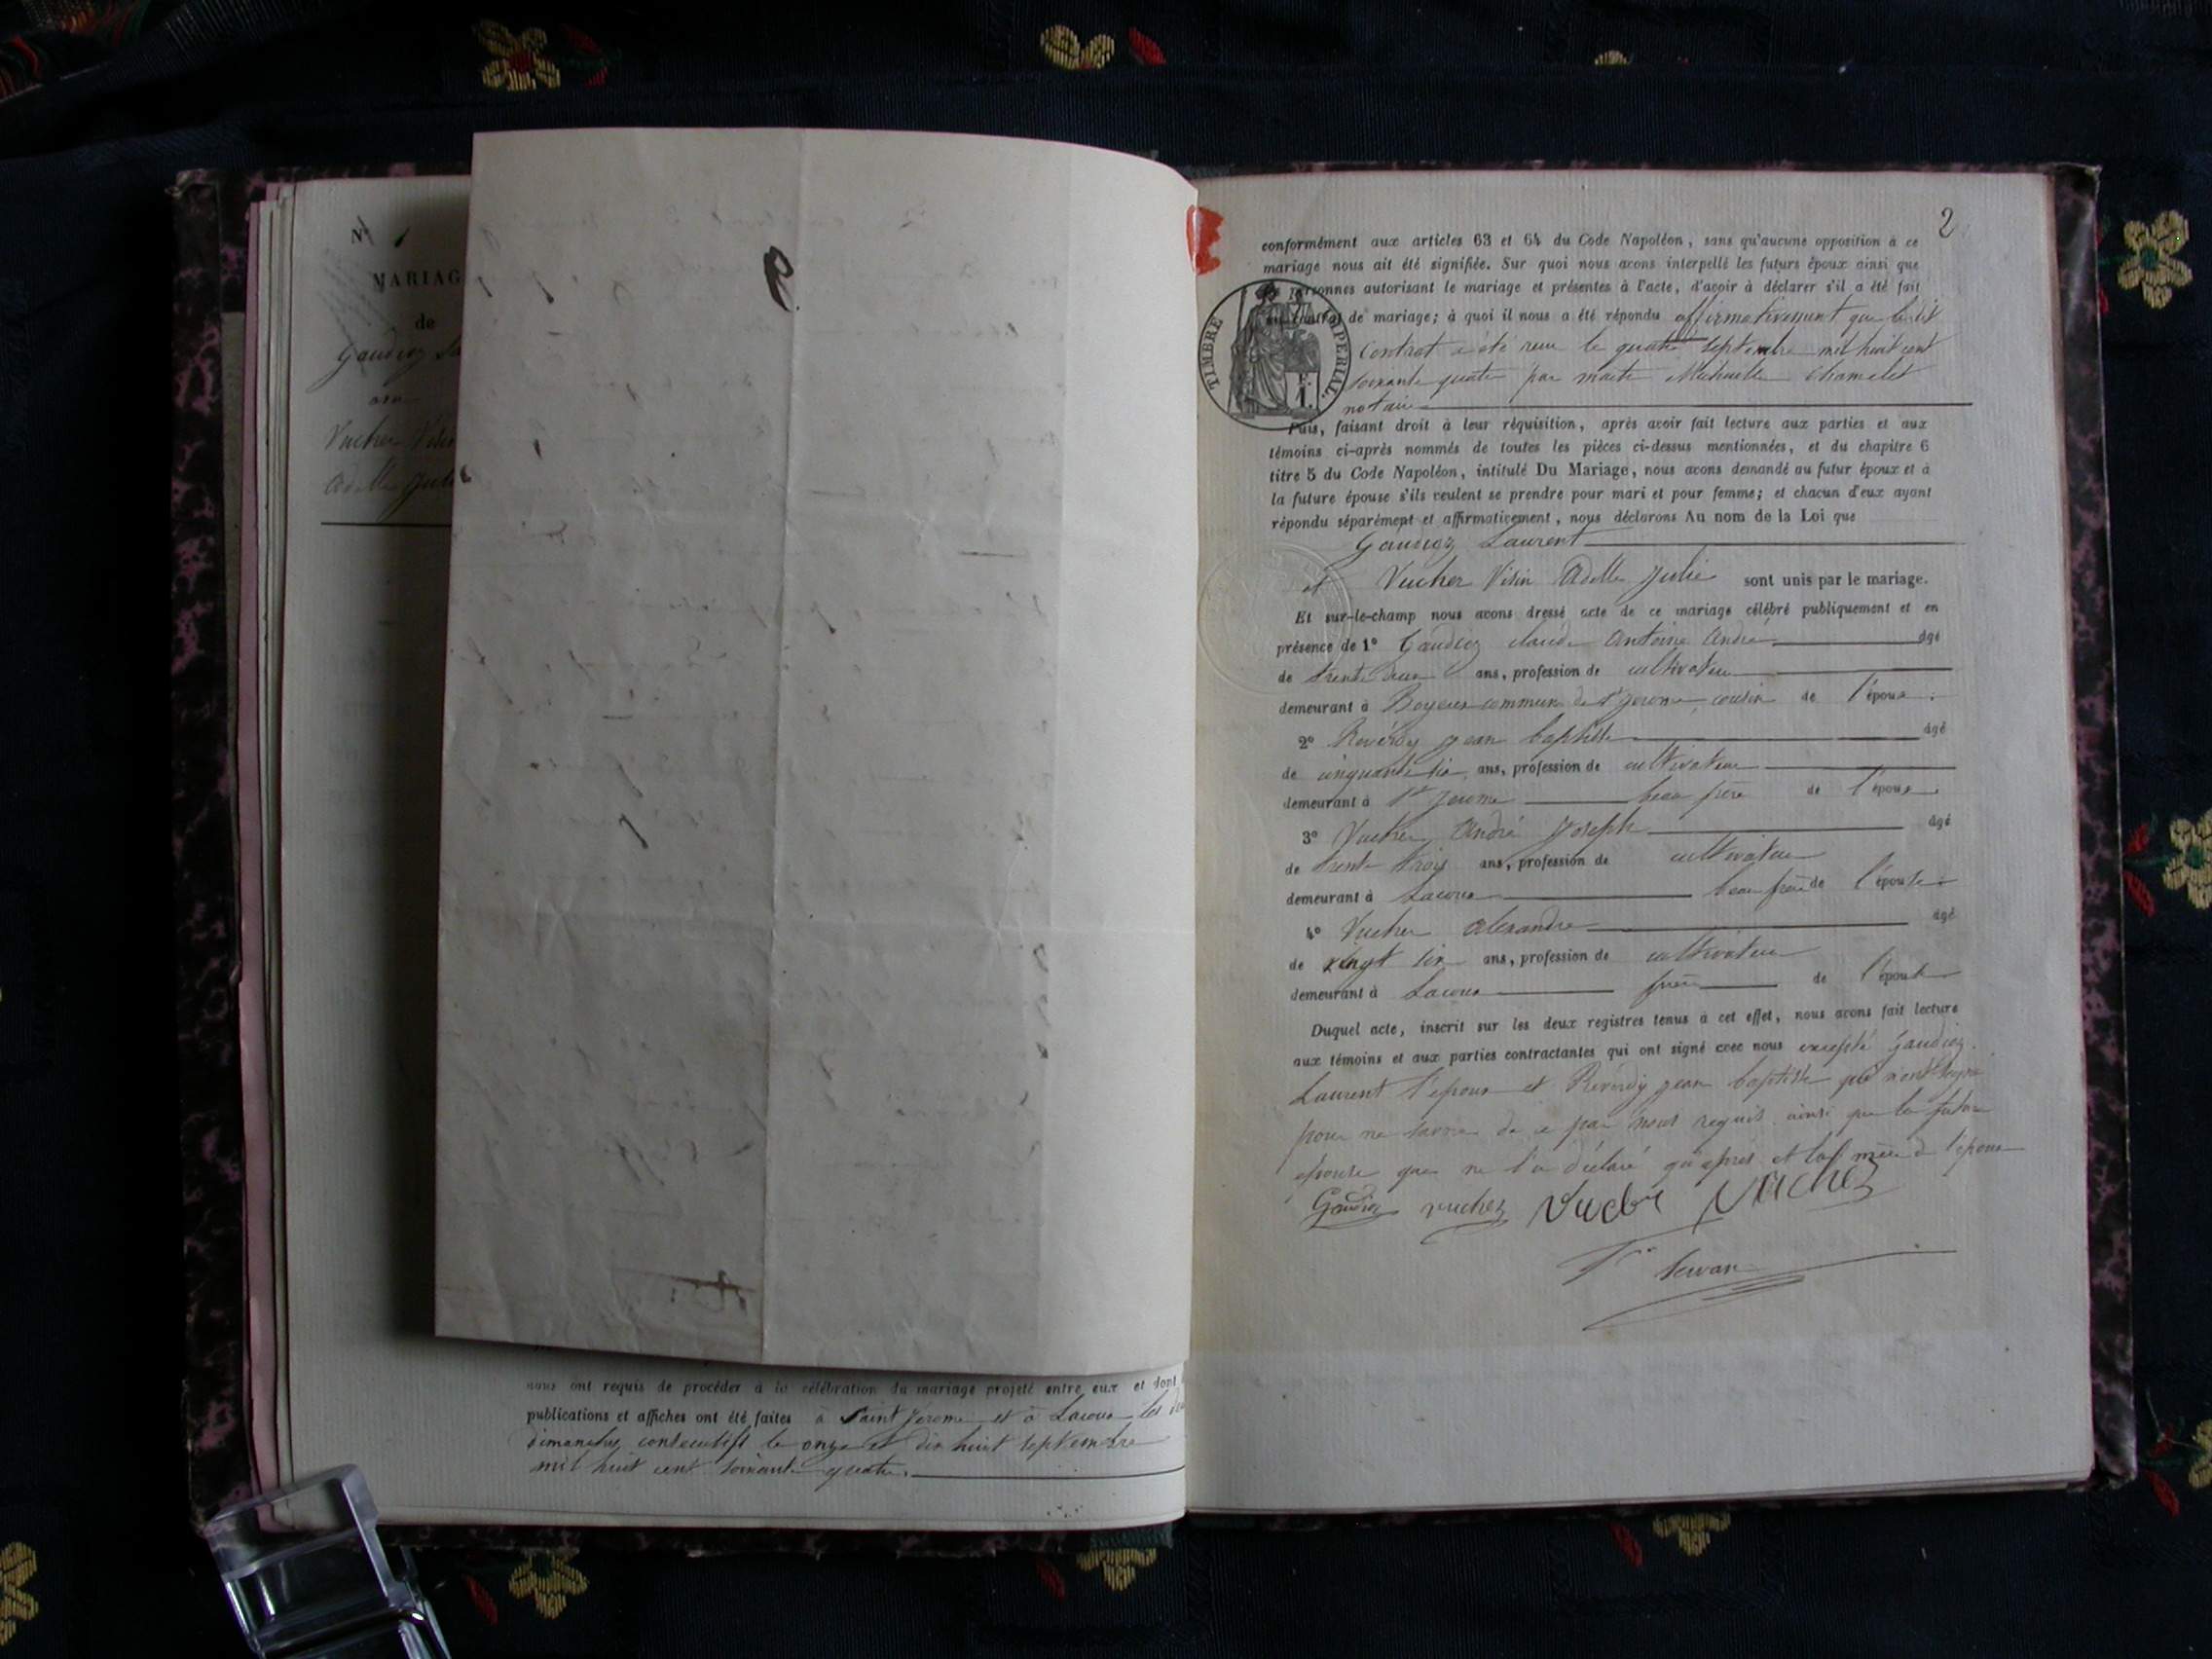 N° 1
MARIAG
de
Gaudioz La
avec
Vucher Visin
Adelle Juli
nous ont requis de procéder à la célébration du mariage projeté entre eux et dont
publications et affiches ont été faites à Saint Jerome et à Lacoux les
dimanches consecutifs le onze et dix huit septembre
mil huit cent soixante quatre.
2
conformément aux articles 63 et 64 du Code Napoléon, sans qu'aucune opposition à ce
mariage nous ait été signifiée. Sur quoi nous avons interpellé les futurs époux ainsi que
personnes autorisant le mariage et présentes à l'acte, d'avoir à déclarer s'il a été fait
contrat de mariage; à quoi il nous a été répondu affirmativement que le dit
TIMBRE IMPERIAL
F.
1.
Contrat a été reçu le quatre septembre mil huit cent
soixante quatre par maitre
notaire
Puis, faisant droit à leur réquisition, après avoir fait lecture aux parties et aux
témoins ci-après nommés de toutes les pièces ci-dessus mentionnées, et du chapitre 6
titre 5 du Code Napoléon, intitulé Du Mariage, nous avons demandé au futur époux et à
la future épouse s'ils veulent se prendre pour mari et pour femme; et chacun d'eux ayant
répondu séparément et affirmativement, nous déclarons Au nom de la Loi que
Gaudioz Laurent
et Vucher Visin Adelle Julie sont unis par le mariage.
Et sur-le-champ nous avons dressé acte de ce mariage célébré publiquement et en
présence de 1° Gaudioz claude Antoine André âgé
de trente deux ans, profession de cultivateur
demeurant à Boyeux commun de st Jerome, cousin de l'époux.
2° Revérdy jean baptiste âgé
de cinquante six ans, profession de cultivateur
demeurant à St Jerome beau frère de l'époux.
3° Vucher André Joseph âgé
de trente trois ans, profession de cultivateur
demeurant à Lacoux beau frère de l'épouse
4° Vucher Alexandre âgé
de vingt six ans, profession de cultivateur
demeurant à Lacoux frère de l'épouse
Duquel acte, inscrit sur les deux registres tenus à cet effet, nous avons fait lecture
aux témoins et aux parties contractantes qui ont signé avec nous excepté Gaudioz
Laurent l'époux et Revérdy jean baptiste qui n'ont signé
pour ne savoir de ce par nous requis ainsi que la future
epouse qui ne l'a déclaré qu'apres et la mère de l'époux
Gaudioz vucher Vucher Vucher
Servan